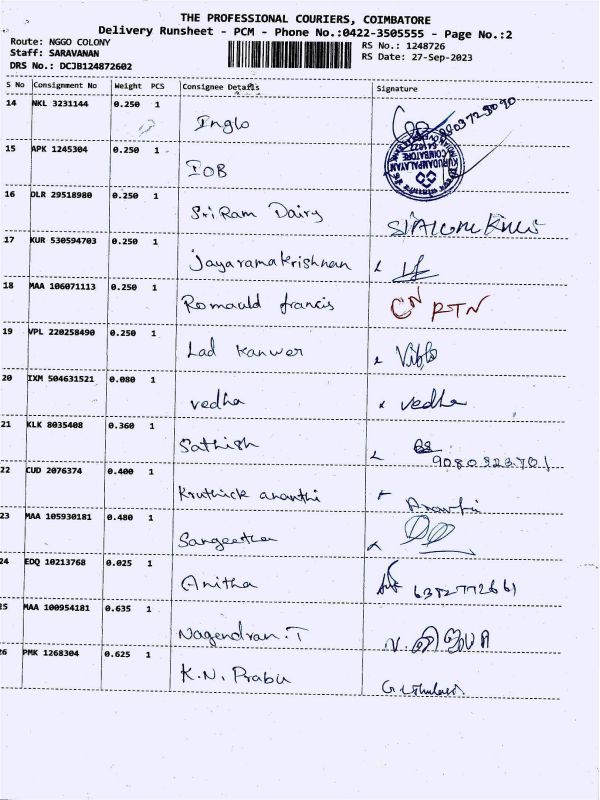 THE PROFESSIONAL COURIERS, COIMBATORE
Delivery Runsheet - PCM - Phone No.:0422-3505555 - Page No.:2
Route: NGGO COLONY
Staff: SARAVANAN
DRS No.: DCJB124872602
RS No.: 1248726
RS Date: 27-Sep-2023
S No Consignment No Weight PCS Consignee Details Signature
14 NKL 3231144 0.250 1 Inglo
15 APK 1245304 0.250 1 IOB
KURUDAMPALAYAM
COIMBATORE
16 DLR 29518980 0.250 1 Sri Ram Dairy
17 KUR 530594703 0.250 1 Jayaramakrishnan
18 MAA 106071113 0.250 1 Romauld francis CN RTN
19 VPL 220258490 0.250 1 Lad Kanwer
20 IXM 504631521 0.080 1 vedha vedha
21 KLK 8035408 0.360 1 Sathish
22 CUD 2076374 0.400 1 Kruthick ananthi
23 MAA 105930181 0.480 1 Sangeetha
24 EDQ 10213768 0.025 1 Anitha 6382772661
25 MAA 100954181 0.635 1 Nagendran.T
26 PMK 1268304 0.625 1 K.N. Prabu